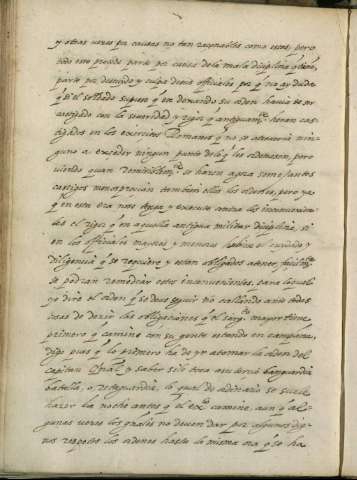 y otras veces por causas no tan razonables como estas, pero
todo esto procede parte por causa de la mala diciplina q̃ tienẽ,
parte por descuido y culpa de los officiales por q̃ no ay duda
q̃ si el soldado supiese q̃ en dexando su orden havia de ser
castigado con la severidad y rigor q̃ antiguamte. heran cas-
tigados en los exercitos Romanos q̃ no se atreveria nin-
guno a exceder ningun punto de lo q̃ les ordenasen, pero
viendo quan se hacen agora semejantes
castigos menosprecian tambien ellos las ordenes, pero ya
q̃ en esta era no se y execute contra los
el rigor q̃ en aquella antigua militar diciplina, si
en los officiales mayores y menores hubiese el cuydado y
diligencia q̃ se requiere y estan obligados a tener, facilmte.
se podran remediar estos inconvenientes, para lo qual
yo dire el orden q̃ se deve seguir no
de decir las obligaciones q̃ el sargto. mayor tiene
primero q̃ camine con su gente estando en campaña,
digo pues q̃ lo primero ha de yr a tomar la orden del
capitan Gnal. y saber si le toca aquel dia banguardia
batalla, o retaguardia, lo qual de ordinario se suele
hazer la noche antes q̃ el exto. camine, aunq̃ al-
gunas veces los gnales no deven dar por algunos dig-
nos respectos las ordenes hasta la misma ora q̃ se ha